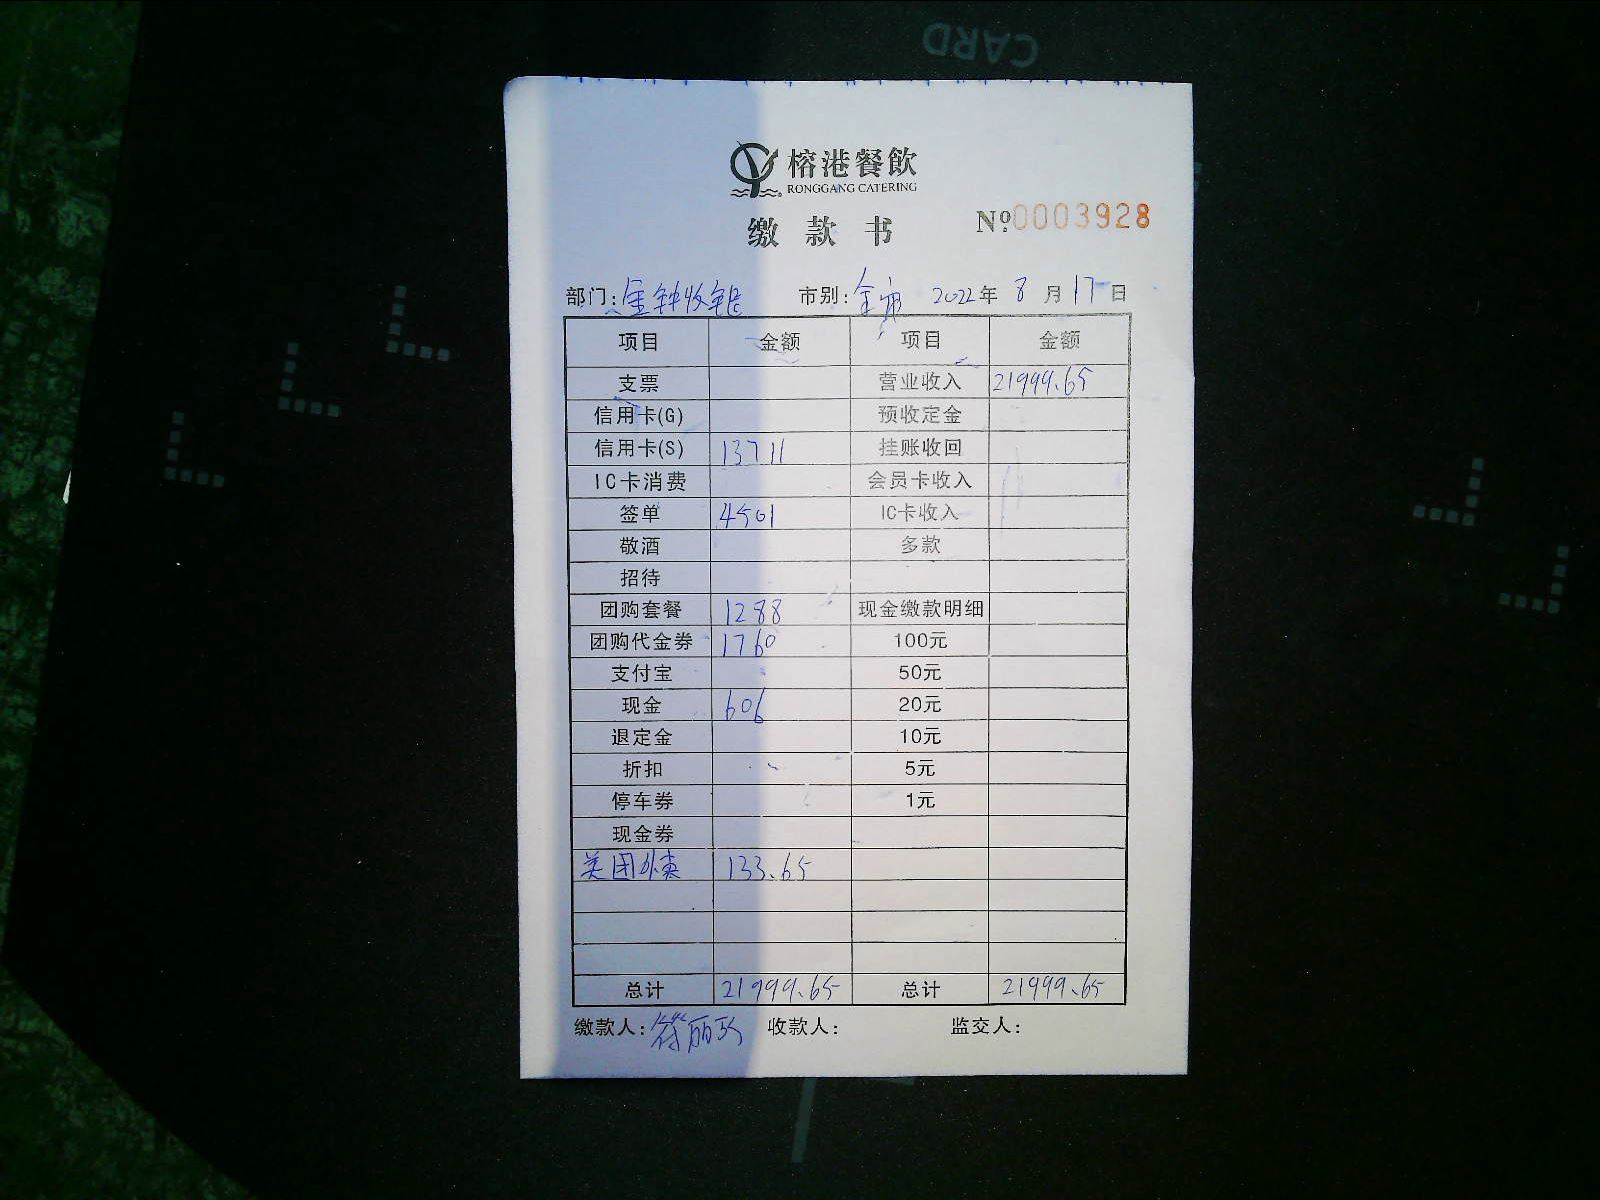 CARD
榕港餐飲
RONGGANG CATERING
缴款书 №0003928
部门:金钟收银 市别:全市 2022年8月17日
项目 金额 项目 金额
支票 营业收入 21999.65
信用卡(G) 预收定金
信用卡(S) 13711 挂账收回
IC卡消费 会员卡收入
签单 4501 IC卡收入
敬酒 多款
招待
团购套餐 1288 现金缴款明细
团购代金券 1760 100元
支付宝 50元
现金 606 20元
退定金 10元
折扣 5元
停车券 1元
现金券
美团外卖 133.65
总计 21999.65 总计 21999.65
缴款人: 收款人: 监交人: